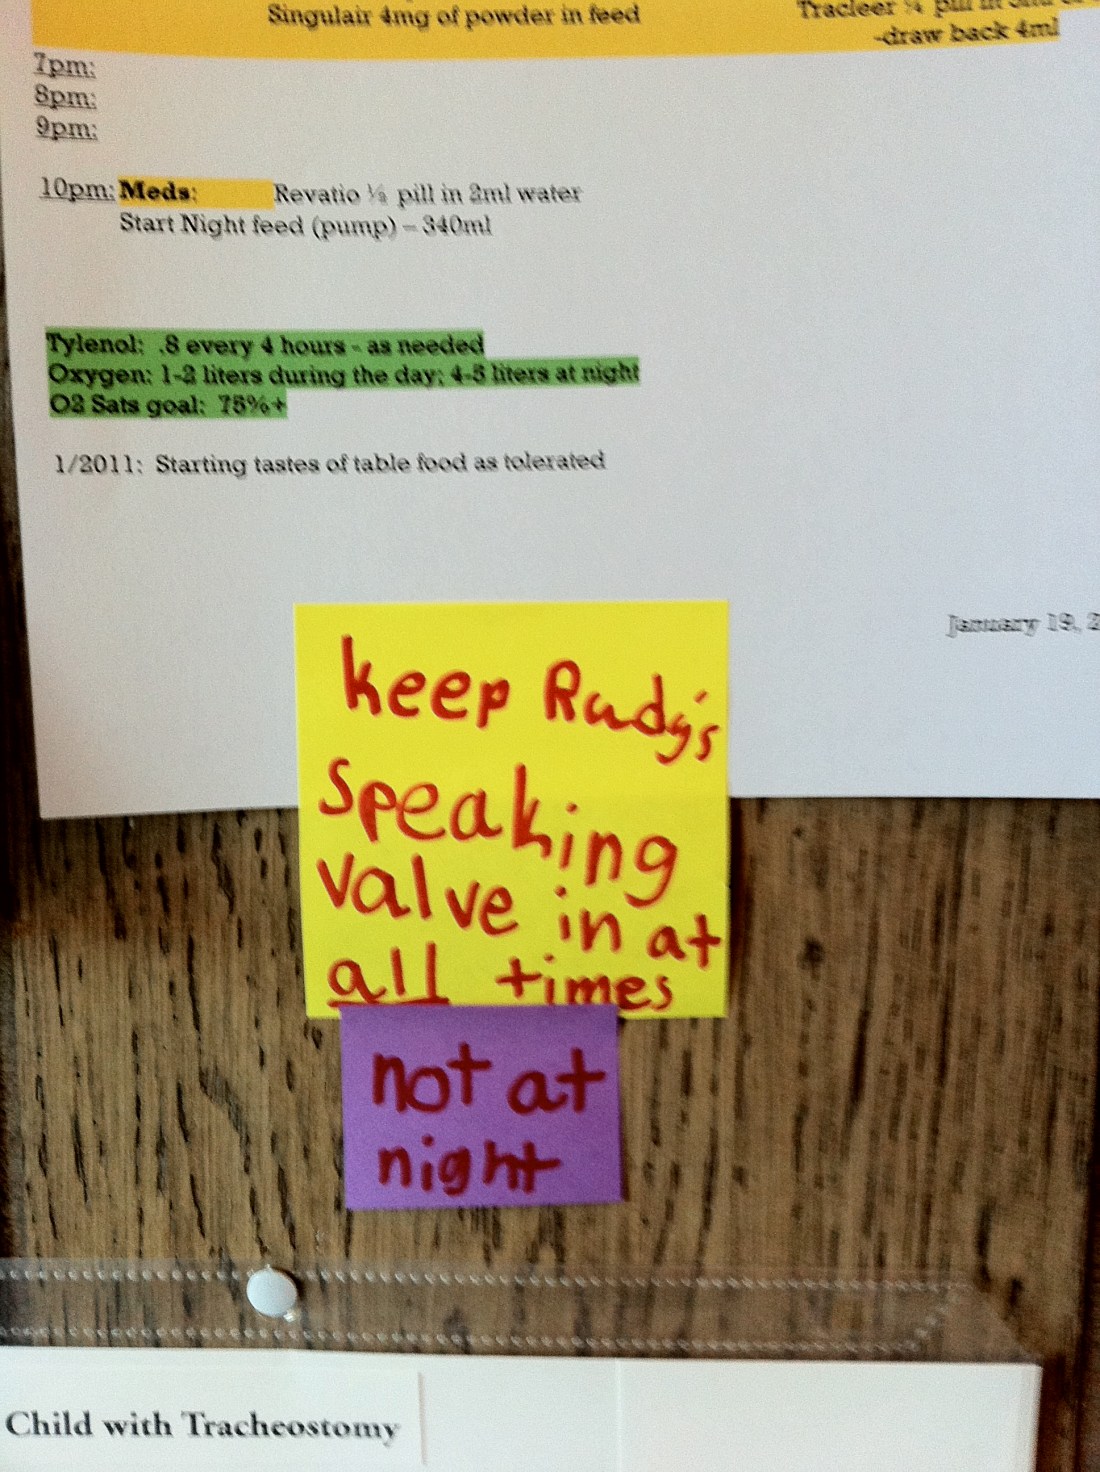 Singulair 4mg of powder in feed
Tracleer ¼ pill in
-draw back 4ml
7pm:
8pm:
9pm:
10pm: Meds: Revatio ½ pill in 2ml water
Start Night feed (pump) – 340ml
Tylenol: .8 every 4 hours - as needed
Oxygen: 1-2 liters during the day; 4-5 liters at night
O2 Sats goal: 75%+
1/2011: Starting tastes of table food as tolerated
January 19, 2
keep Rudy's
speaking
valve in at
all times
not at
night
Child with Tracheostomy